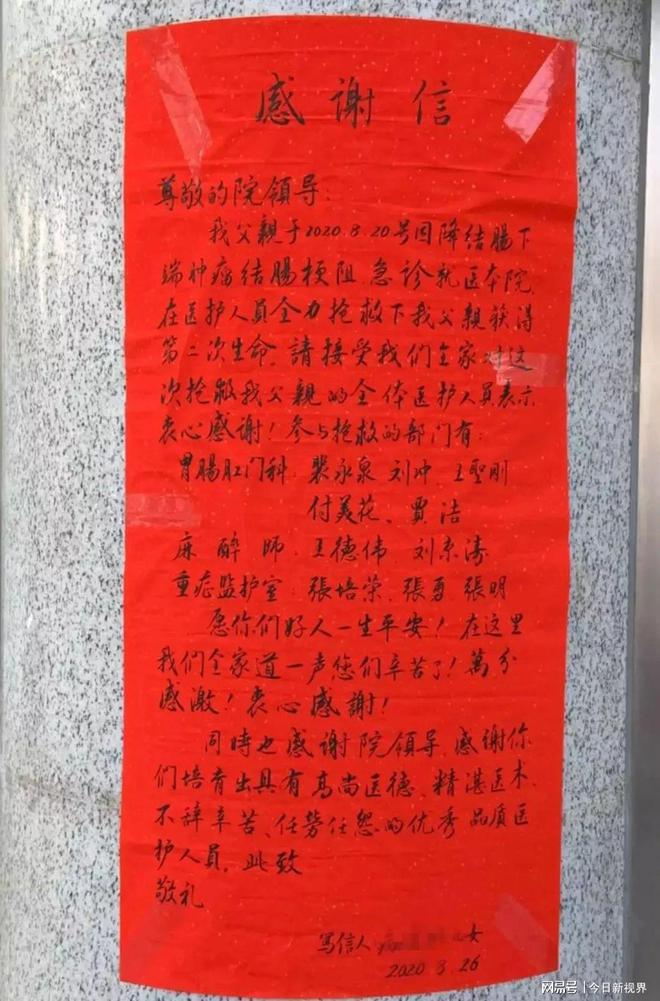 感謝信
尊敬的院領导:
我父親于2020.8.20号因降结腸下
端肿瘤结腸梗阻.急诊就医本院.
在医护人员全力抢救下我父親获得
第二次生命.請接受我们全家对这
次抢救我父親的全体医护人员表示
衷心感謝!参与抢救的部门有:
胃腸肛门科:裴永泉 刘冲、王聖刚
付美花、贾洁
麻醉師:王德伟.刘京涛
重症监护室:張培荣、張勇 張明
愿你们好人一生平安!在这里
我们全家道一声您们辛苦了!萬分
感激!衷心感謝!
同時也感谢院領导.感谢你
们培育出具有高尚医德、精湛医术.
不辞辛苦、任劳任怨的优秀品质医
护人员.此致
敬礼
写信人 女
2020 8.26
网易号 | 今日新视界